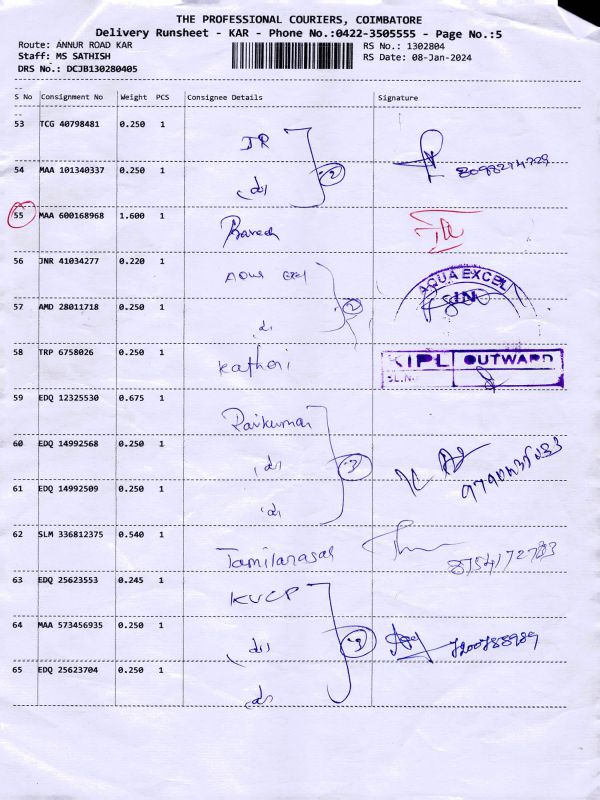 THE PROFESSIONAL COURIERS, COIMBATORE
Delivery Runsheet - KAR - Phone No.:0422-3505555 - Page No.:5
Route: ANNUR ROAD KAR RS No.: 1302804
Staff: MS SATHISH RS Date: 08-Jan-2024
DRS No.: DCJB130280405
S No Consignment No Weight PCS Consignee Details Signature
53 TCG 40798481 0.250 1
JR
54 MAA 101340337 0.250 1
2
55 MAA 600168968 1.600 1
56 JNR 41034277 0.220 1
AQUA EXCEL
57 AMD 28011718 0.250 1
2
58 TRP 6758026 0.250 1
Kathori
KIPL OUTWARD
SL.N
59 EDQ 12325530 0.675 1
Rajkumar
60 EDQ 14992568 0.250 1
3
61 EDQ 14992509 0.250 1
62 SLM 336812375 0.540 1
Tamilarasan
63 EDQ 25623553 0.245 1
KVCP
64 MAA 573456935 0.250 1
3 7200788989
65 EDQ 25623704 0.250 1